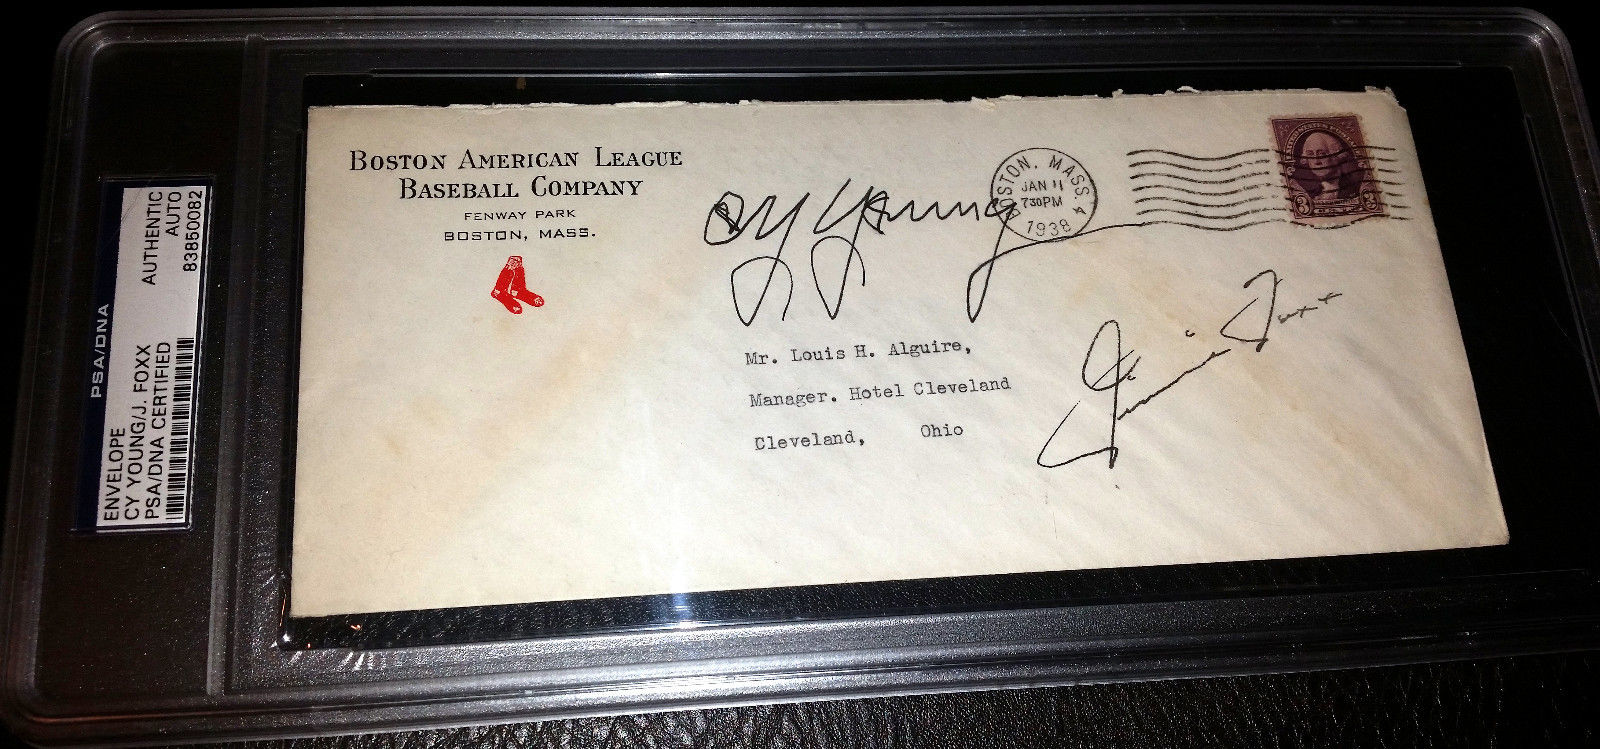 PSA/DNA
ENVELOPE
CY YOUNG/J. FOXX
PSA/DNA CERTIFIED
AUTHENTIC
AUTO
83850082
BOSTON AMERICAN LEAGUE
BASEBALL COMPANY
FENWAY PARK
BOSTON, MASS.
Cy Young
BOSTON, MASS. 4
JAN 11
730PM
1938
3 3
Jimmie Foxx
Mr. Louis H. Alguire,
Manager. Hotel Cleveland
Cleveland, Ohio